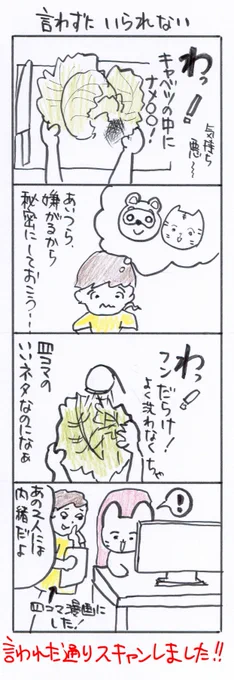 言わずにいられない
わっ!
キャベツの中に
ナメ〇〇!
気持ち
悪〜
あいつら、
嫌がるから
秘密にしておこう…
わっ!
フンだらけ!
よく洗わなくちゃ
四コマの
いいネタなのになぁ
!
あの2人には
内緒だよ
四コマ漫画に
した!
言われた通りスキャンしました!!